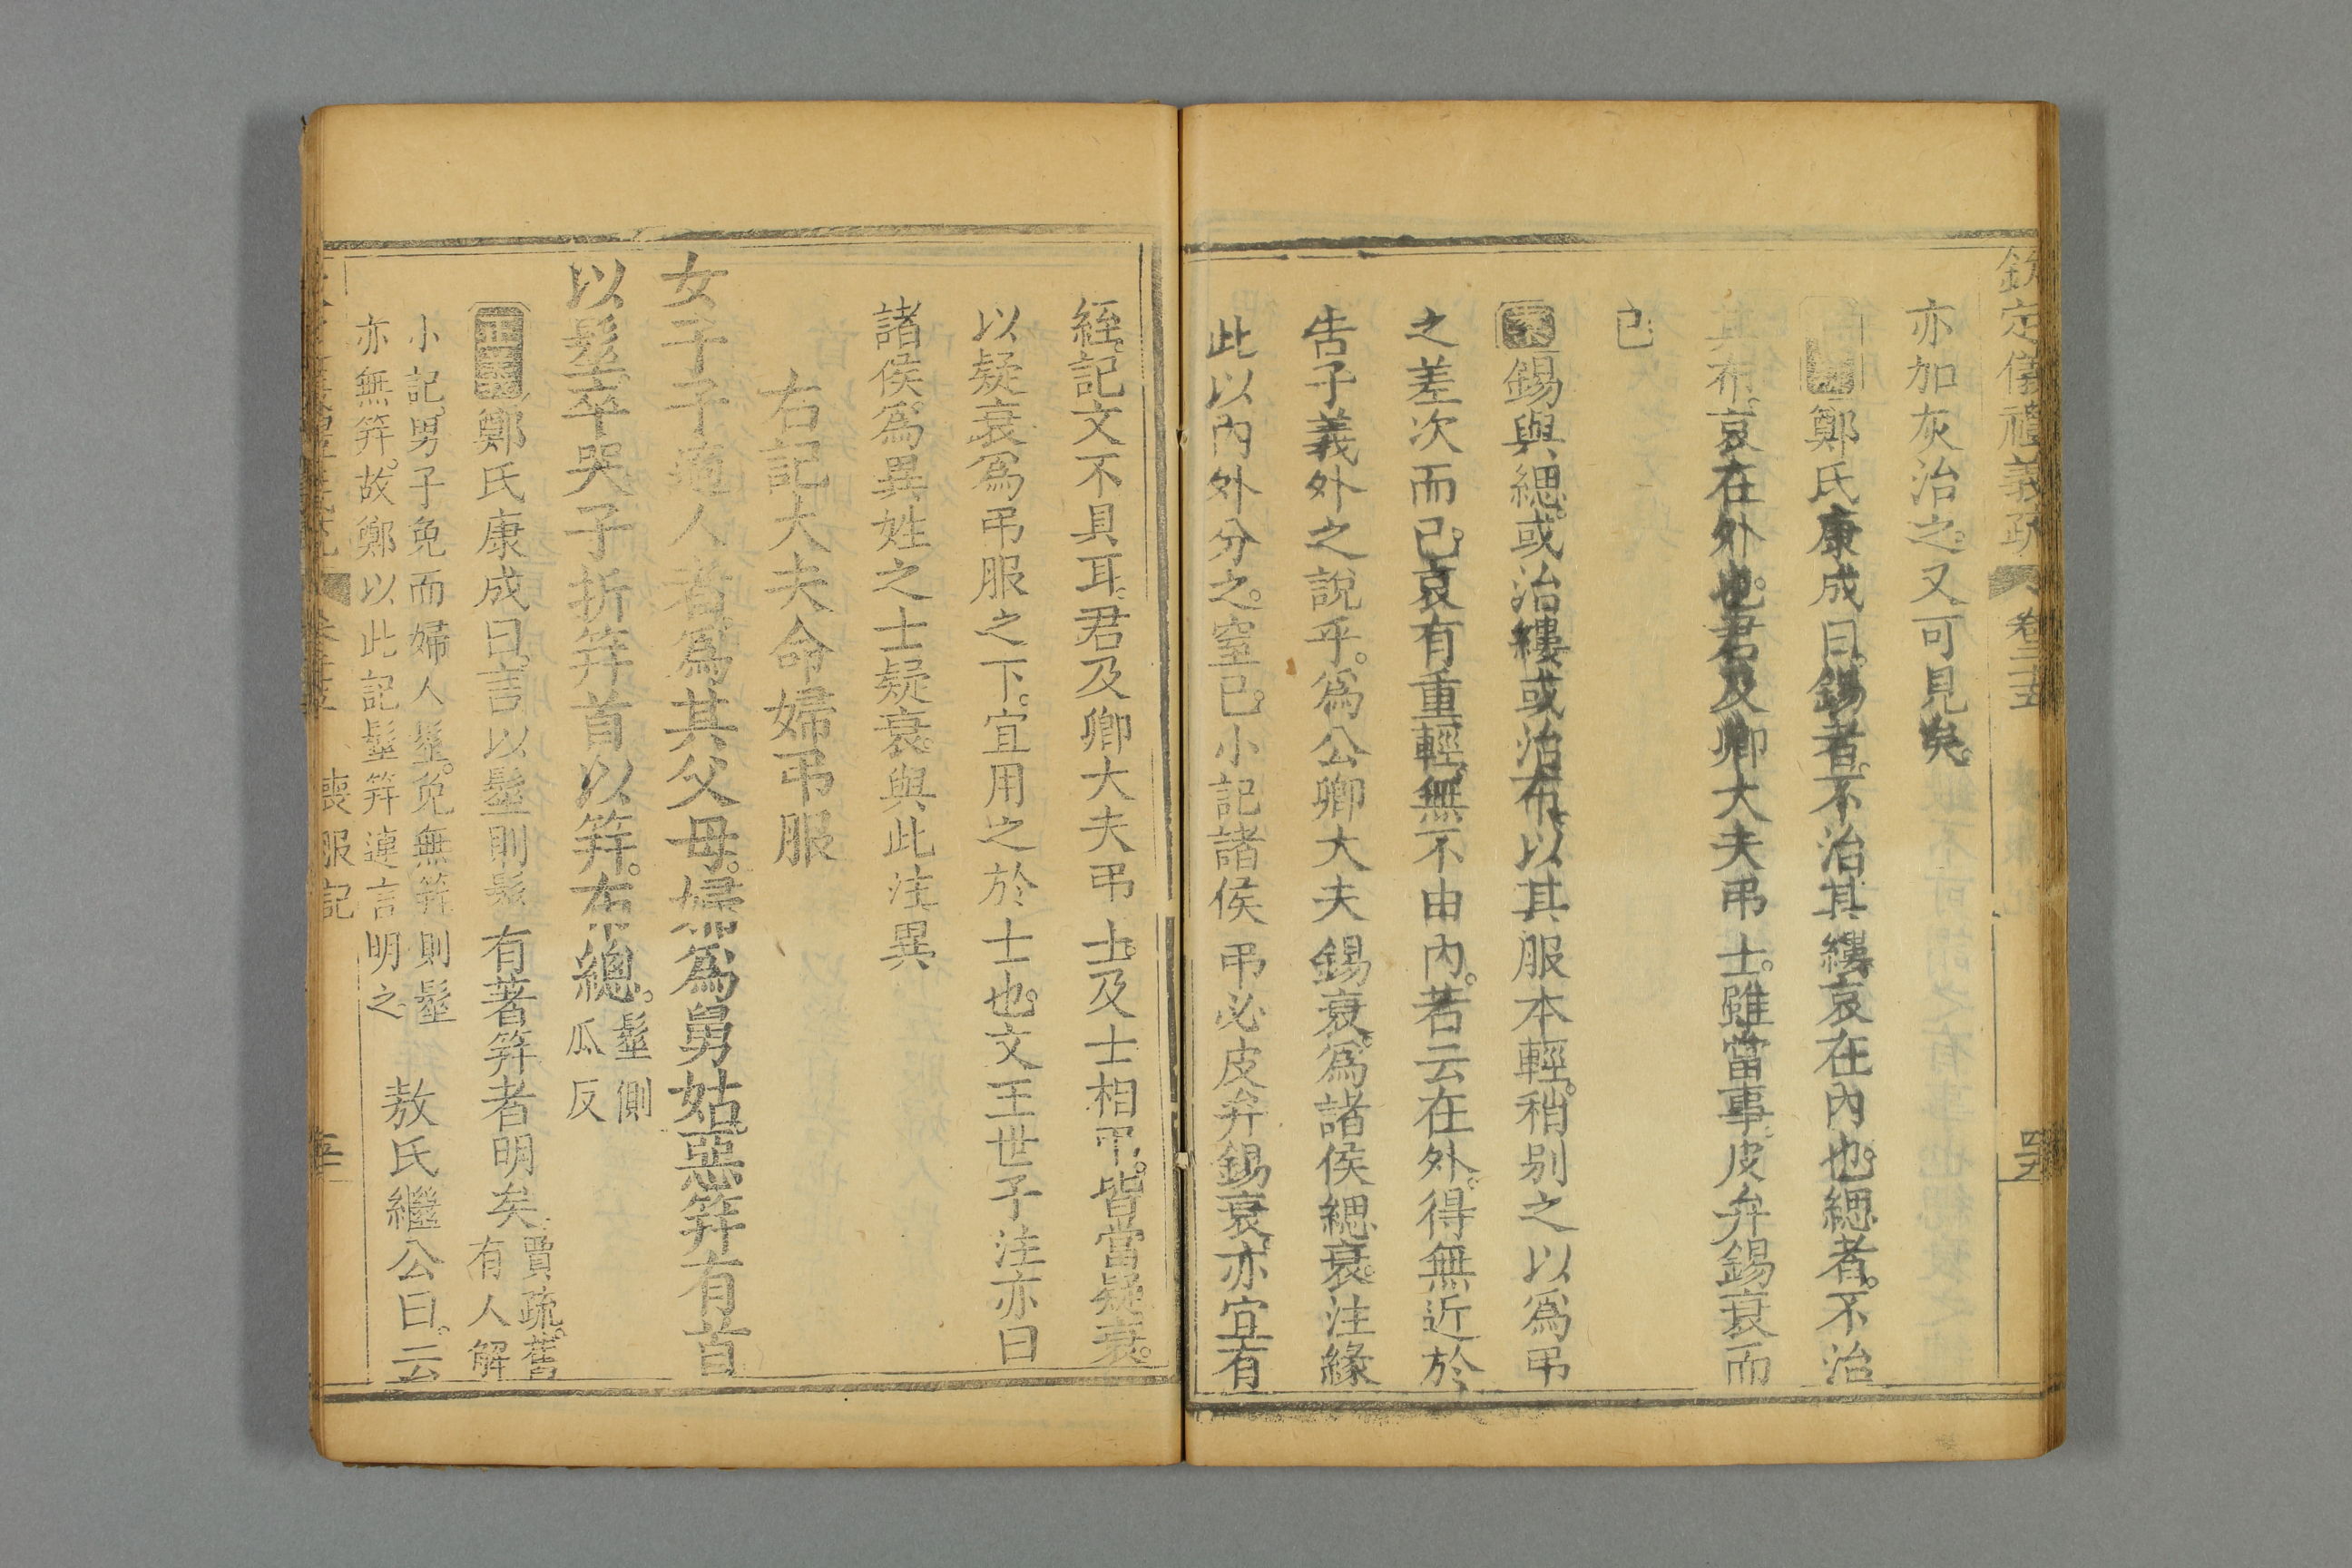 欽定儀禮義疏 卷二十五
亦加灰治之又可見矣
鄭氏康成曰錫者不治其縷哀在內也緦者不治
其布哀在外也君及卿大夫弔士雖當事皮弁錫衰而
已
案錫與緦或治縷或治布以其服本輕稍別之以爲弔
之差次而已哀有重輕無不由內若云在外得無近於
告子義外之說乎爲公卿大夫錫衰爲諸侯緦衰注緣
此以內外分之窒已小記諸侯弔必皮弁錫衰亦宜有
絰記文不具耳君及卿大夫弔士及士相弔皆當疑衰
以疑衰爲弔服之下宜用之於士也文王世子注亦曰
諸侯爲異姓之士疑衰與此注異
右記大夫命婦弔服
女子子適人者爲其父母婦爲舅姑惡笄有首
以髽卒哭子折笄首以笄布總髽側瓜反
正義鄭氏康成曰言以髽則髽有著笄者明矣賈疏舊有人解
小記男子免而婦人髽免無笄則髽
亦無笄故鄭以此記髽笄連言明之
敖氏繼公曰云
喪服記